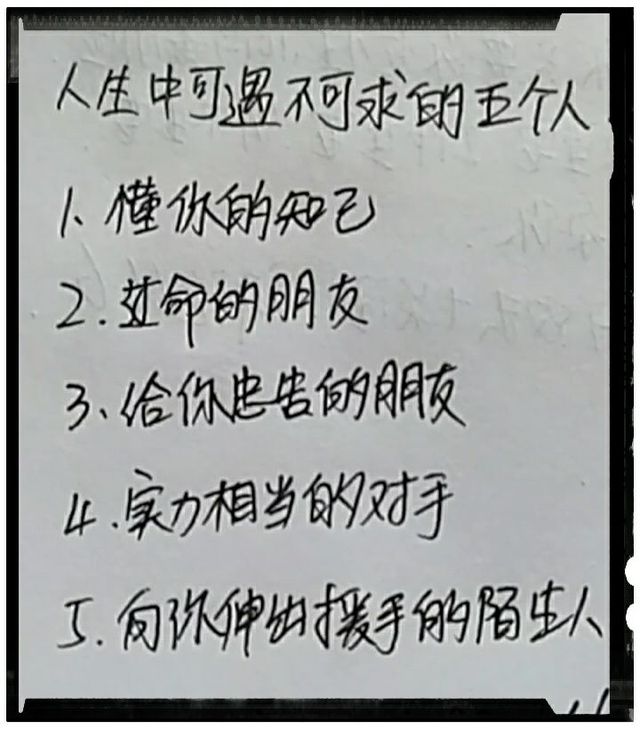 人生中可遇不可求的五个人
1、懂你的知己
2.过命的朋友
3、给你忠告的朋友
4.实力相当的对手
5.向你伸出援手的陌生人